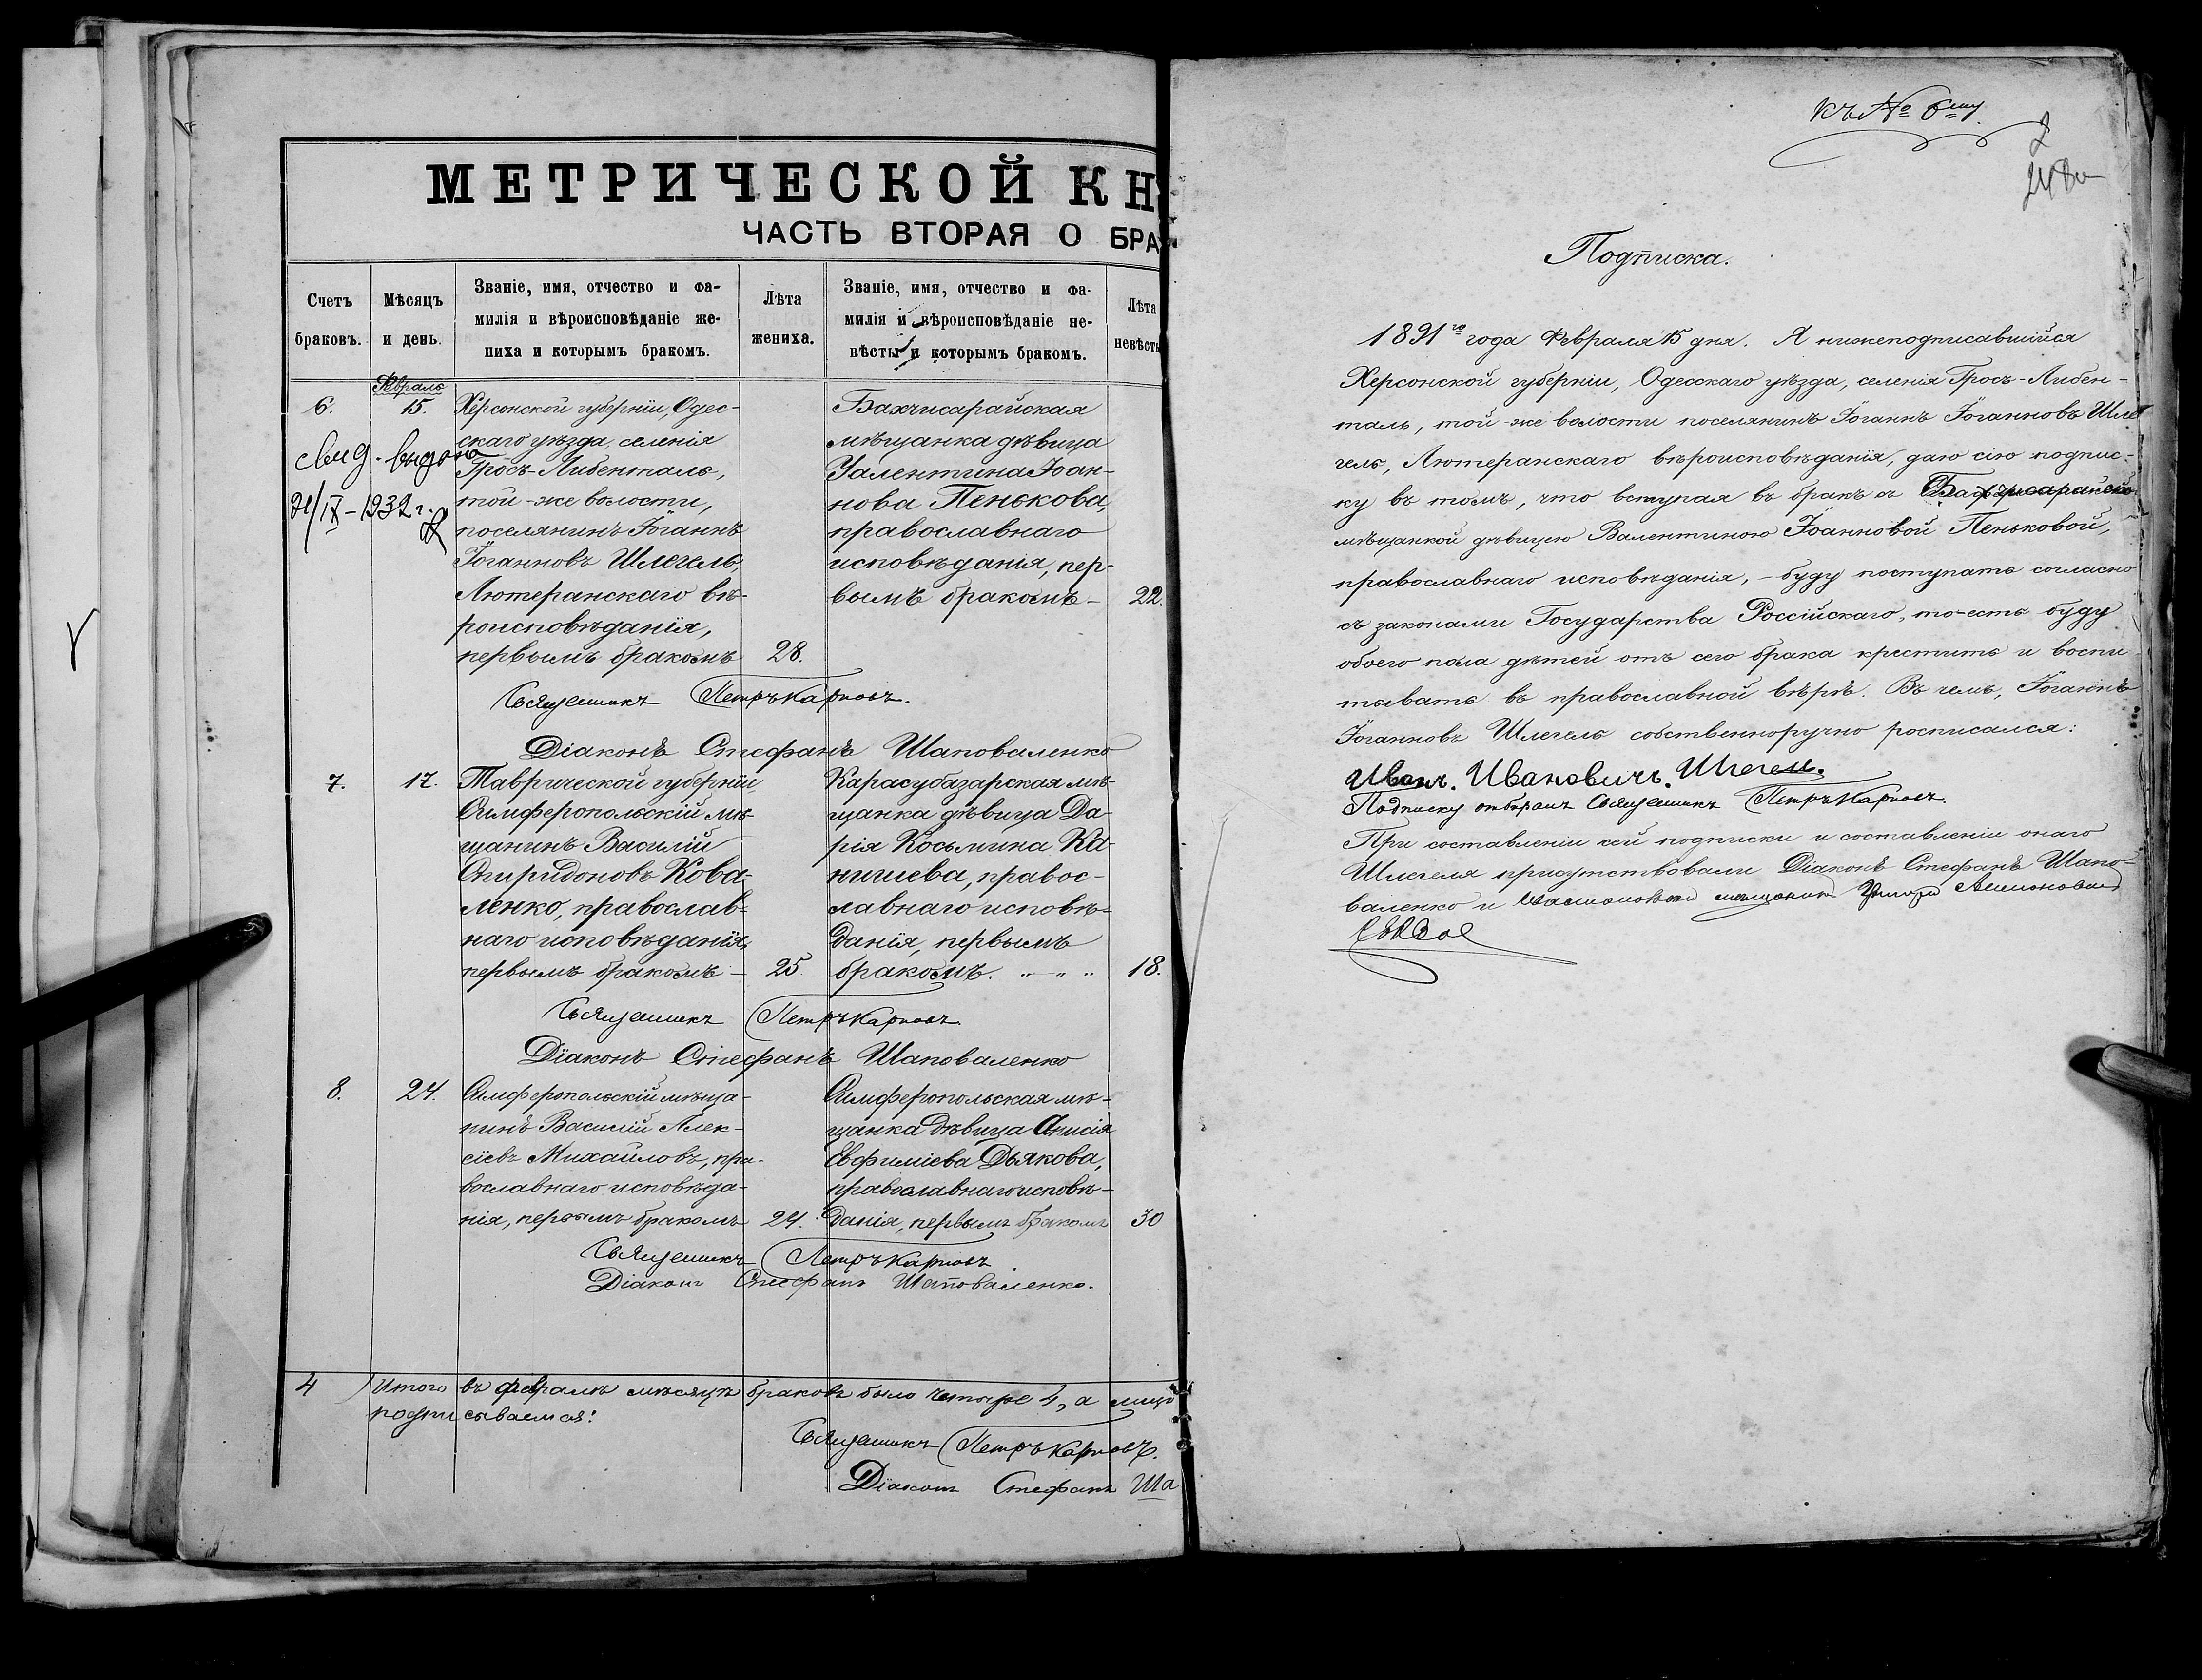 МЕТРИЧЕСКОЙ КН
ЧАСТЬ ВТОРАЯ О БРА
Счетъ браковъ.
Мѣсяцъ и день.
Званіе, имя, отчество и фа-
милія и вѣроисповѣданіе же-
ниха и которымъ бракомъ.
Лѣта жениха.
Званіе, имя, отчество и фа-
милія и вѣроисповѣданіе не-
вѣсты и которымъ бракомъ.
Лѣта невѣсты
Февраль
6.
15.
свид. выдано
21/IX-1932 г.
Херсонской губерніи, Одес-
скаго уѣзда, селенія
Гросъ-Либенталь,
той-же волости,
поселянинъ Іоганнъ
Іоганновъ Шлегель,
Лютеранскаго вѣ-
роисповѣданія,
первымъ бракомъ
28.
Бахчисарайская
мѣщанка дѣвица
Валентина Іоан-
нова Пенькова,
православнаго
исповѣданія, пер-
вымъ бракомъ-
22.
Священникъ Петръ Карповъ.
Діаконъ Стефанъ Шаповаленко
7.
17.
Таврической губерніи
Симферопольскій мѣ-
щанинъ Василій
Спиридоновъ Кова-
ленко, православ-
наго исповѣданія,
первымъ бракомъ-
25.
Карасубазарская мѣ-
щанка дѣвица Да-
рія Косьмина Ка-
нишева, правос-
лавнаго исповѣ-
данія, первымъ
бракомъ. " - " "
18.
Священникъ Петръ Карповъ
Діаконъ Стефанъ Шаповаленко
8.
24.
Симферопольскій мѣща-
нинъ Василій Алек-
сіевъ Михайловъ, пра-
вославнаго исповѣда-
нія, первымъ бракомъ
24.
Симферопольская мѣ-
щанка дѣвица Анисія
Евфиміева Дьякова,
православнаго исповѣ-
данія, первымъ бракомъ
30
Священникъ Петръ Карповъ
Діаконъ Стефанъ Шаповаленко.
4
Итого въ февралѣ мѣсяцѣ браковъ было четыре 4, а лицъ
подписываемся:
Священникъ Петръ Карповъ.
Діаконъ Стефанъ Ша
Къ № 6му.
Подписка.
1891го года Февраля 15 дня. Я нижеподписавшійся
Херсонской губерніи, Одесскаго уѣзда, селенія Гросъ-Либен-
таль, той-же волости поселянинъ Іоганнъ Іоганновъ Шле-
гель, Лютеранскаго вѣроисповѣданія, даю сію подпис-
ку въ томъ, что вступая въ бракъ съ Бахчисарайско
мѣщанкой дѣвицею Валентиною Іоанновой Пеньковой,
православнаго исповѣданія, - буду поступать согласно
съ законами Государства Россійскаго, то-есть буду
обоего пола дѣтей отъ сего брака крестить и воспи-
тывать въ православной вѣрѣ. Въ чемъ, Іоганнъ
Іоганновъ Шлегель собственноручно росписался:
Иванъ. Ивановичъ. Шлегель.
Подписку отбиралъ Священникъ Петръ Карповъ.
При составленіи сей подписки и составленіи онаго
Шлегеля присутствовали Діаконъ Стефанъ Шапо-
валенко и мѣщанинъ